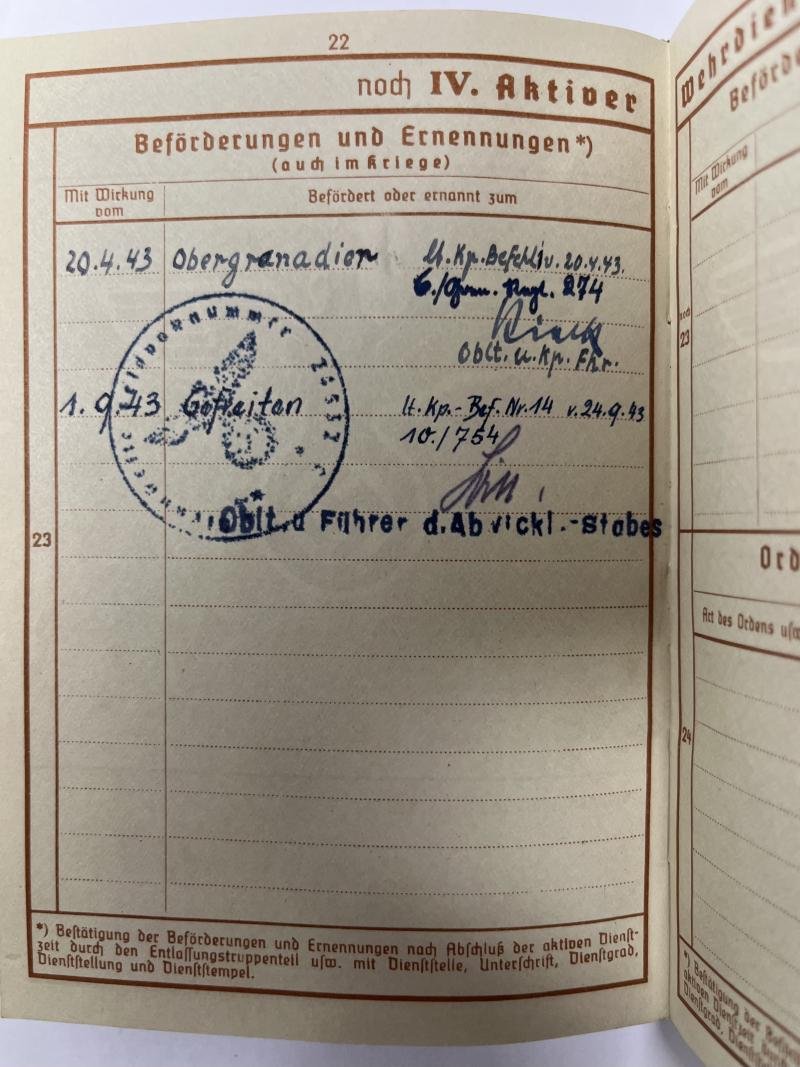 22
noch IV. Aktiver
Beförderungen und Ernennungen*)
(auch im Kriege)
Mit Wirkung vom
Befördert oder ernannt zum
20.4.43 Obergrenadier lt. Kp. Befehl v. 20.4.43.
6./Gren. Regt. 274
Oblt. u. Kp. Fhr.
1.9.43 Gefreiten lt. Kp.-Bef. Nr. 14 v. 24.9.43
10./754
Feldpostnummer
Oblt. u Führer d. Abwickl.-Stabes
23
*) Bestätigung der Beförderungen und Ernennungen nach Abschluß der aktiven Dienst-
zeit durch den Entlassungstruppenteil usw. mit Dienststelle, Unterschrift, Dienstgrad,
Dienststellung und Dienststempel.
Wehrdien
Beförde
Mit Wirkung vom
noch 23
Ord
Art des Ordens usw
24
*) Bestätigung der Beförde
aktiven Dienstzeit durch
Dienstgrad, Dienststellu